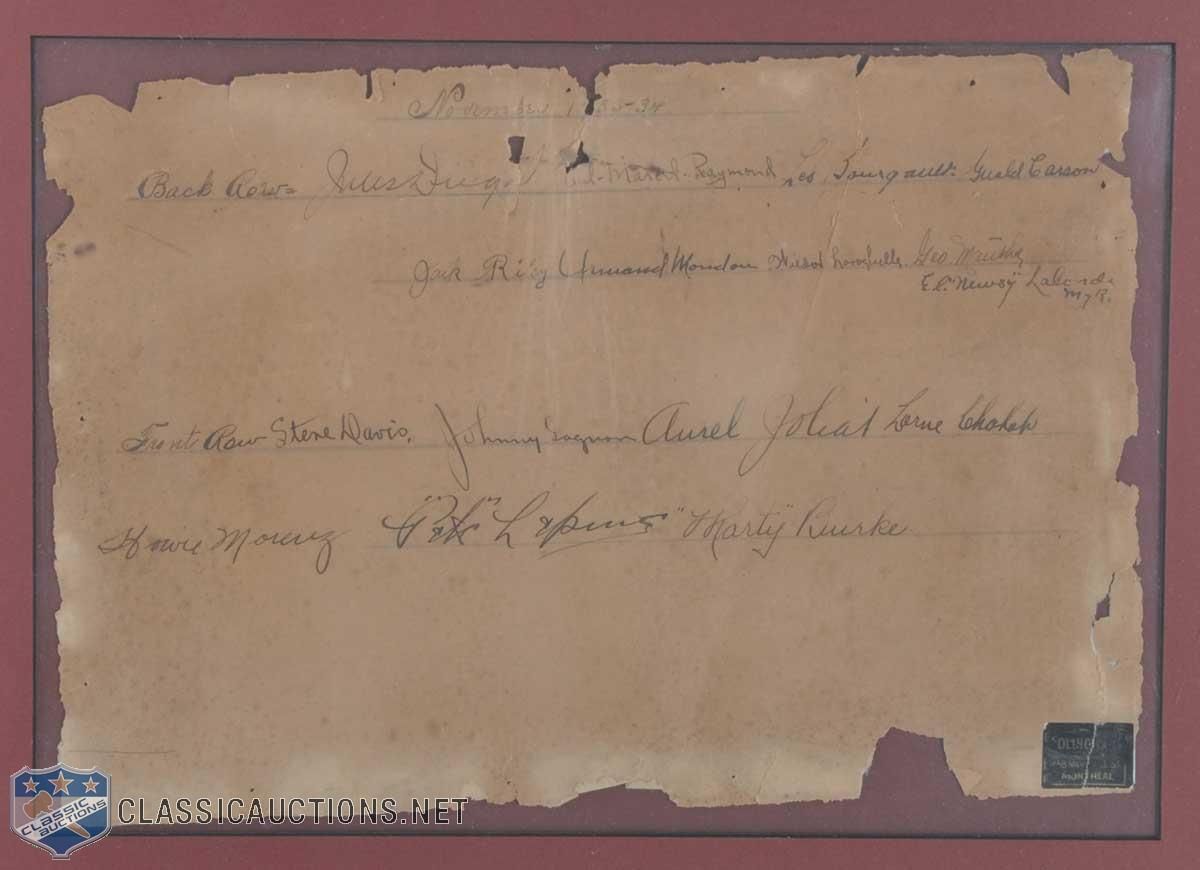 November 1933-34
Back Row= Jules Dugal Paul-Marcel-Raymond Leo Bourgault: Gerald Carson
Jack Riley Armand Mondou Wildor Larochelle. Geo Mantha
E.C. "Newsy" Lalonde
Mgr.
Front Row Steve Davis, Johnny Gagnon Aurel Joliat Lorne Chabot
Howie Morenz "Pit" Lepine "Marty" Burke
MONTREAL
CLASSIC AUCTIONS
CLASSICAUCTIONS.NET